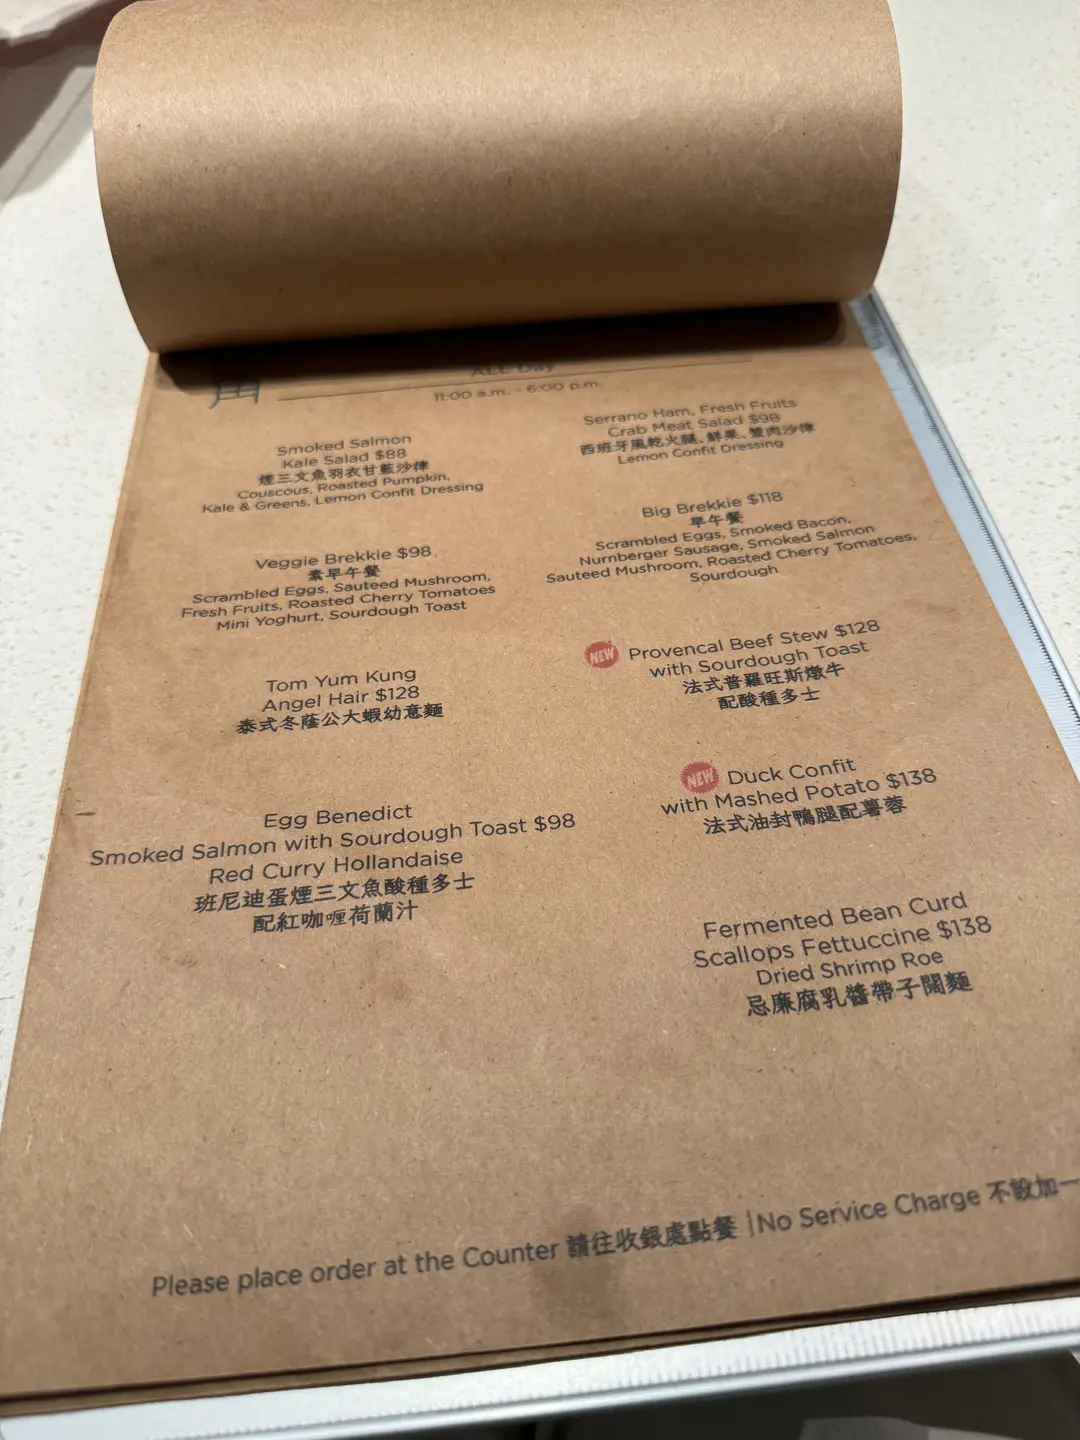 ALL Day
11:00 a.m. - 6:00 p.m.
Smoked Salmon
Kale Salad $88
煙三文魚羽衣甘藍沙律
Couscous, Roasted Pumpkin,
Kale & Greens, Lemon Confit Dressing
Veggie Brekkie $98
素早午餐
Scrambled Eggs, Sauteed Mushroom,
Fresh Fruits, Roasted Cherry Tomatoes
Mini Yoghurt, Sourdough Toast
Tom Yum Kung
Angel Hair $128
泰式冬蔭公大蝦幼意麵
Egg Benedict
Smoked Salmon with Sourdough Toast $98
Red Curry Hollandaise
班尼迪蛋煙三文魚酸種多士
配紅咖喱荷蘭汁
Serrano Ham, Fresh Fruits
Crab Meat Salad $98
西班牙風乾火腿、鮮果、蟹肉沙律
Lemon Confit Dressing
Big Brekkie $118
早午餐
Scrambled Eggs, Smoked Bacon,
Nurnberger Sausage, Smoked Salmon
Sauteed Mushroom, Roasted Cherry Tomatoes,
Sourdough
NEW Provencal Beef Stew $128
with Sourdough Toast
法式普羅旺斯燉牛
配酸種多士
NEW Duck Confit
with Mashed Potato $138
法式油封鴨腿配薯蓉
Fermented Bean Curd
Scallops Fettuccine $138
Dried Shrimp Roe
忌廉腐乳醬帶子闊麵
Please place order at the Counter 請往收銀處點餐 | No Service Charge 不設加一